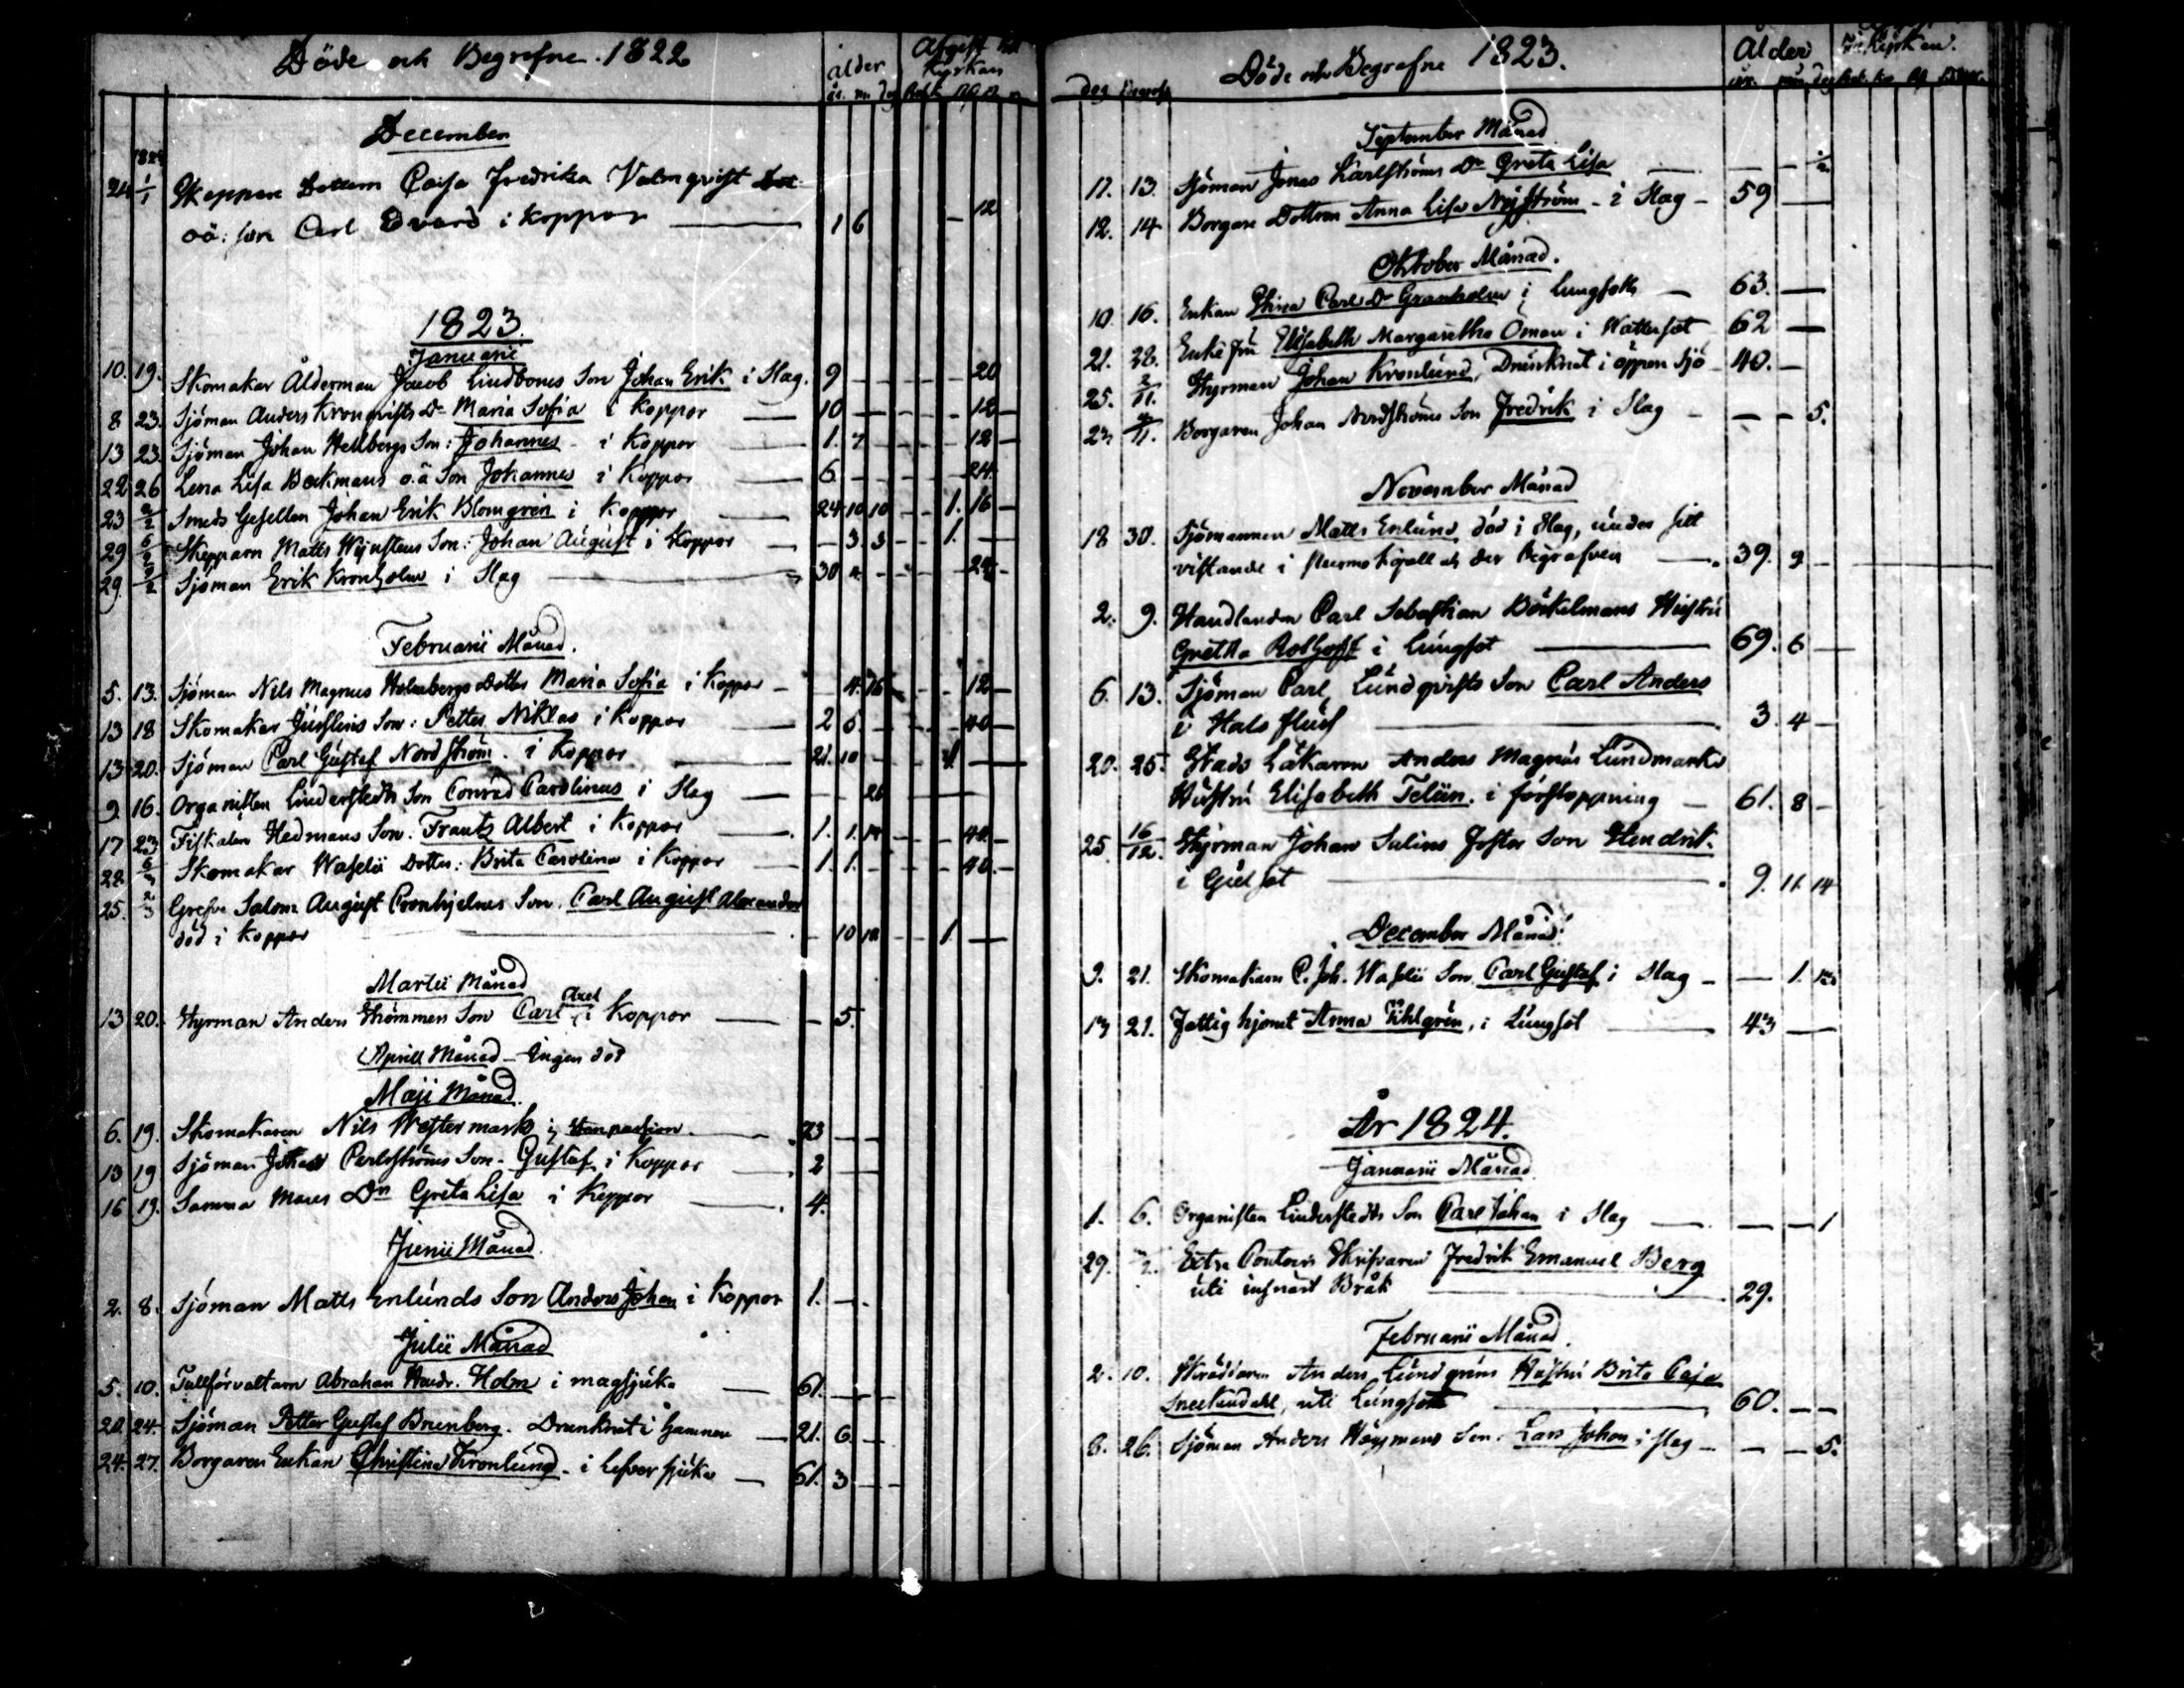 Döde och Begrafne. 1822
ålder
Afgift till
Kyrkan
år. m. dag
December
24 1/1 Skeppare Dottern Caisa Fredrika Valmqvist
oä: son Carl Evard i koppor 1 6 12
1823.
Januarii
10. 19. Skomakar Ålderman Jacob Lindboms Son Johan Erik i Slag. 9 20
8 23. Sjöman Anders Kronqvists Dr Maria Sofia i koppor 10 12
13 23. Sjöman Johan Hellbergs Son: Johannes i koppor 1. 7 12
22 26 Lena Lisa Beckmans o.ä Son Johannes i Koppor 6 24
23 2/2 Smeds Gesellen Johan Erik Blomgren i Koppor 24 10 10 1. 16
29 6/2 Skepparn Matts Son: Johan August i koppor 3. 3 1.
29. /2 Sjöman Erik Kronholm i Slag 30 4 24
Februarii Månad.
5. 13. Sjöman Nils Magnus Holmbergs Dotter Maria Sofia i koppor 4. 16 12
13 18 Skomakar Son: Petter Niklas i koppor 2 5 40
13 20. Sjöman Carl Gustaf Nordström i koppor 21. 10 1
9. 16. Organisten Linderstedts Son Conrad Carolinus i Slag 26
17 23 Fiskalen Hedmans Son. Frantz Albert i koppor 1. 1. 14 40
22. 6/3 Skomakar Waselii Dotter: Brita Carolina i koppor 1. 1. 40
25. 2/3 Grefve Salom August Cronhjelms Son. Carl August Alexander
död i koppor 10 10 1
Martii Månad
13 20. Styrman Anders Strömmers Son Carl Axel i koppor 5.
Aprill Månad - Ingen död
Maji Månad.
6. 19. Skomakaren Nils Westermark i 23
13 19 Sjöman Johan Carlströms Son. Gustaf i koppor 2
16 19. Samma Mans Dr Greta Lisa i koppor 4.
Junii Månad.
2. 8. Sjöman Matts Enlunds Son Anders Johan i Koppor 1.
Julii Månad
5. 10. Tullförvaltarn Abraham Holm i magsjuka 61.
20. 24. Sjöman Petter Gustaf Brunberg. Drunknat i hamnen 21. 6.
24. 27. Borgaren Enkan Christina Kronlund i lefver sjuka 61. 3
Döde och Begrafne 1823.
Ålder
Kyrkan.
dag
September Månad
11. 13. Sjöman Jonas Karlströms Dr Greta Lisa
12. 14 Borgare Dottren Anna Lisa Nyström - i Slag 59
Oktober Månad.
10. 16. Enkan Stina Carls Dr Granholm i lungsoth 63.
21. 28. Enke fru Elisabeth Margaretha Öman i Wattusot 62
25. 2/11. Styrman Johan Kronlund, Drunknat i öppen Sjö 40.
23 /11. Borgaren Johan Nordströms Son Fredrik i Slag 5.
November Månad
18 30. Sjömannen Matts Enlund död i Slag, under sitt
vistande i och der Begrafven 39. 9
2. 9. Handlanden Carl Sebastian Böckelmans Hustru
Gretha i Lungsot 69. 6
6. 13. Sjöman Carl Lundqvists Son Carl Anders
i Hals fluss 3. 4
20. 25. Stads Läkaren Anders Magnus Lundmarks
Hustru Elisabeth Telin. i förstoppning 61. 8
25 16/12. Styrman Johan Salins Foster Son Hendrik.
i Gulsot 9. 11. 14
December Månad
9. 21. Skomakarn C. Joh. Waselii Son Carl Gustaf i Slag 1. 12
13 21. Fattig hjonet Anna Ihlgrén, i Lungsot 43
År 1824.
Januarii Månad
1. 6. Organisten Linderstedts Son Carl Johan i Slag 1
29. /2. Extra Contoirs Skrifvaren Fredrik Emanuel Berg
uti Bråk 29.
Februarii Månad.
2. 10. Skräddaren Anders Lundgrens Hustru Brita Caja
uti Lungsot 60.
6. 26. Sjöman Anders Son. Lars Johan i Slag 5.